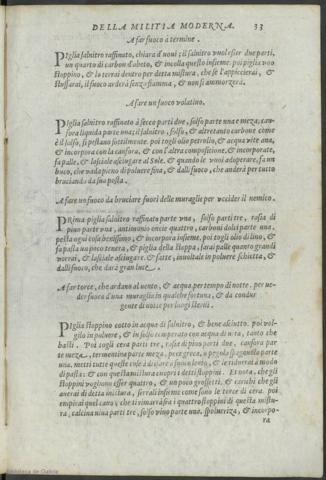 DELLA MILITIA MODERNA. 33
A far fuoco a termine.
PIglia salnitro raffinato, chiara d'uoui; il salnitro vuol esser due parti,
un quarto di carbon d'abeto, & incolla questo insieme. poi piglia vno
stoppino, & lo terrai dentro per detta mistura, che se l'appiccierai, &
stussarai, il fuoco arderà senza fiamma, & non si ammorzerà.
A fare un fuoco volatino.
PIglia salnitro raffinato à secco parti due, solfo parte vna e meza, can-
fora liquida parte vna; il salnitro, solfo, & altretanto carbone come
è il solfo, si pestano sottilmente. poi togli olio petrolio, & acqua vite ana,
& incorpora con la canfora, & con l'altra compositione, & incorporata,
fa palle, & lasciale asciugar al Sole. & quando le vuoi adoperare, fa un
buco, che vada pieno di poluere fina, & dalli fuoco, che anderà per tutto
bruciando da sua posta.
A fare un fuoco da bruciare fuori delle muraglie per vccider il nemico.
PRima piglia salnitro raffinato parte vna, solfo parti tre, rosa di
pino parte vna, antimonio oncie quattro, carboni dolci parte una.
pesta ogni cosa benissimo, & incorpora insieme. poi togli olio di lino, &
fa pasta un poco tenera, & piglia della stoppa, farai palle quanto grandi
vorrai, & lasciale asciugare. & fatte, inuoltale in poluere schietta, &
dalli fuoco, che darà gran luce.
A far torce, che ardano al uento, & acqua per tempo di notte. per ue-
der fuora d'una muraglia in qualche fortuna, & da condur
gente di notte per luoghi sterili.
PIglia stoppino cotto in acqua di salnitro, & bene asciutto. poi vol-
gilo in poluere, & in solfo temperato con acqua di vita, tanto che
basti. Poi togli cera parti tre, rosa di pino parti due, canfora par-
te meza, termentina parte meza, pece greca, o pegola spagnola parte
una. metti tutte queste cose à disfare à suono lento, & le ridurai à modo
di pasta: & con questa mistura cuopri i detti stoppini. Et nota, che gli
stoppini vogliono esser quattro, & un poco grossetti, & carichi che gli
auerai di detta mistura, serrali insieme come sono le torce di cera. poi
empirai quel cauo, che ti rimarrà fra i quattro stoppini di questa mistu-
ra, calcina uiua parti tre, solfo viuo parte una. spoluerizza, & incorpo-
ra
Biblioteca de Galicia